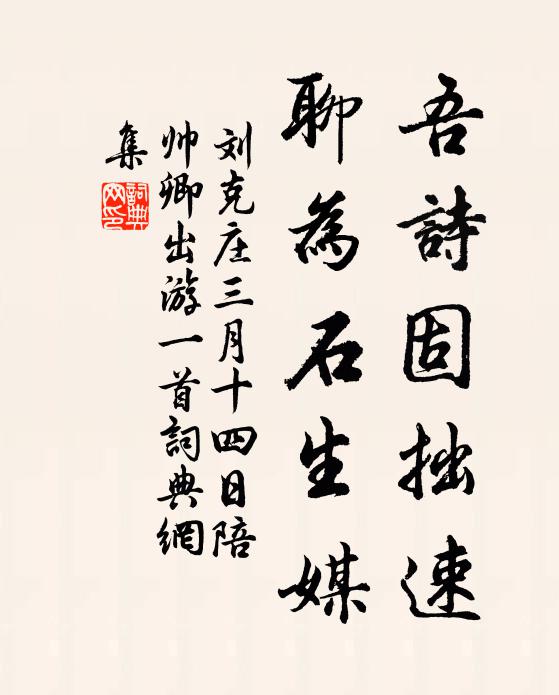 吾詩固拙速
聊為石生媒
刘克庄三月十四日陪
帅卿出游一首詞典網
集
詞典網印